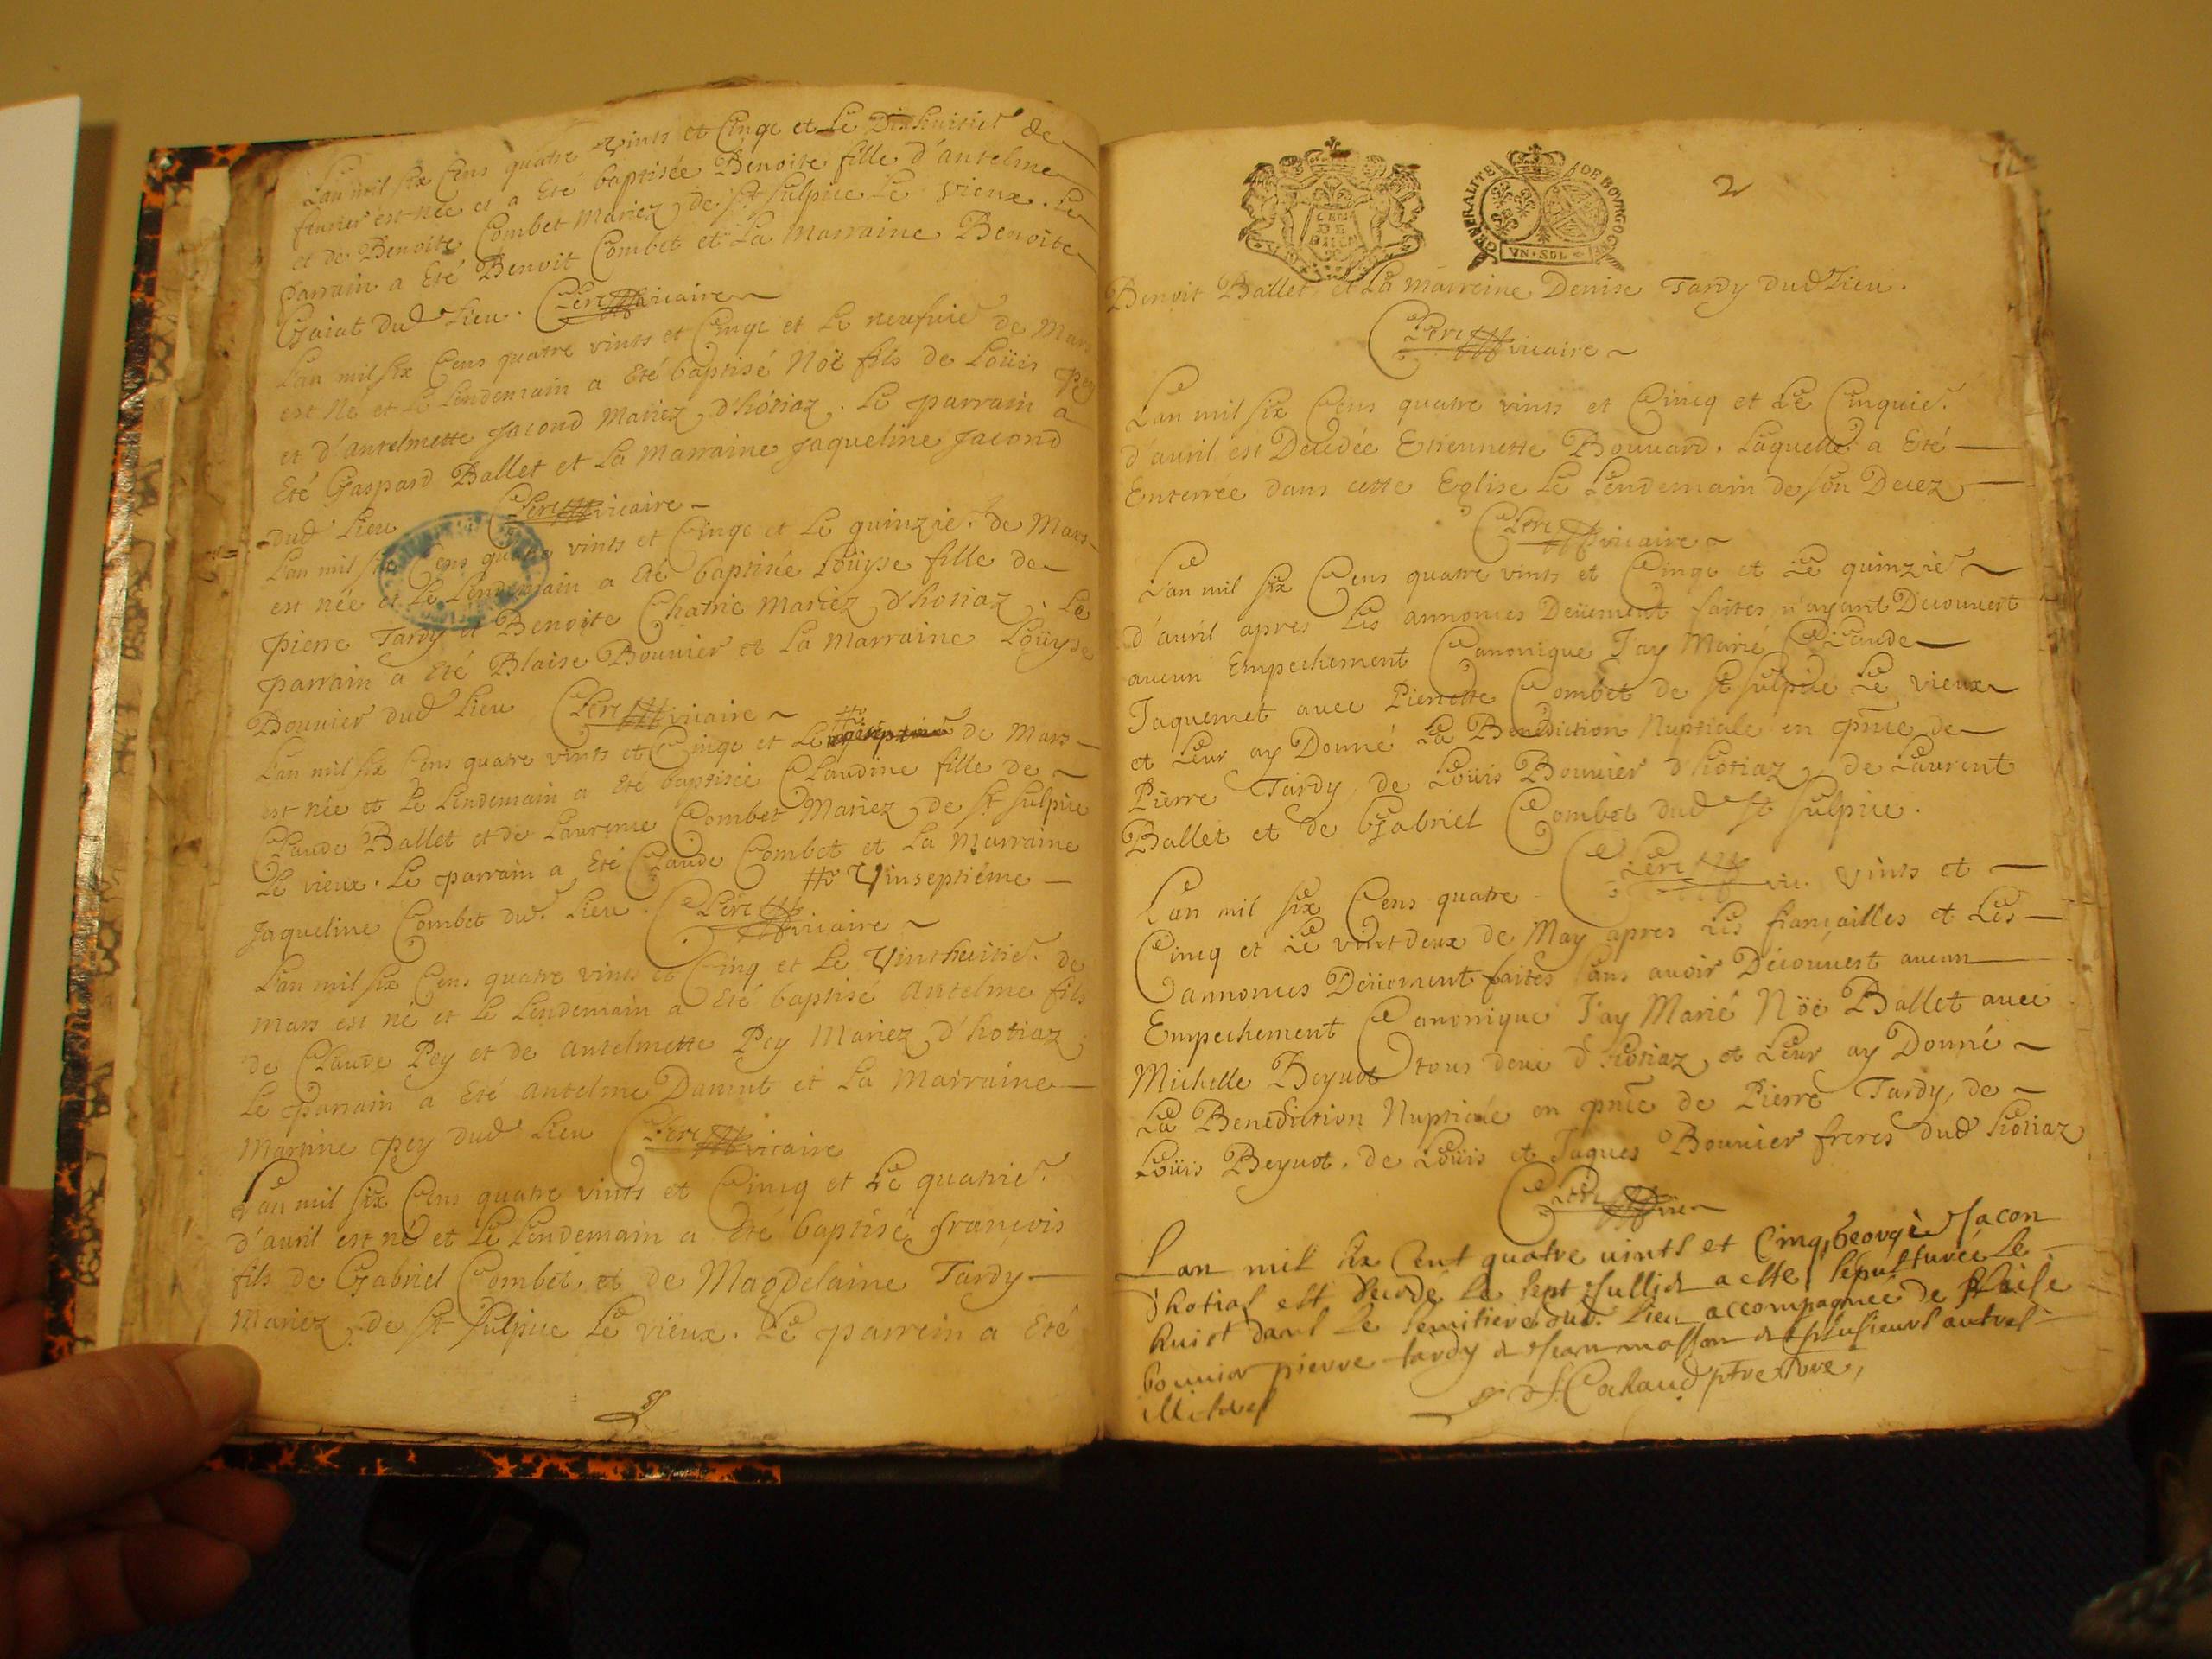 L'an mil six Cens quatre vints et Cinqe et Le Dixhuitie. de
feurier est née et a Eté baptisée Benoite fille d'antelme
et de Benoite Combet Mariez, de St Sulpice Le vieux. Le
parrain a Eté Benoit Combet et La Marraine Benoite
Gaiat dud Lieu. Pere vicaire
L'an mil six Cens quatre vints et Cinqe et Le neufuie de Mars
est né et Le Lendemain a Eté baptisé Noë fils de Loüis pey
et d'Antelmette Jacond Mariez, d'hotiaz. Le parrain a
Eté Gaspard Ballet et La Marraine Jaqueline Jacond
dud Lieu Pere vicaire
L'an mil six Cens quatre vints et Cinqe et Le quinzie. de Mars
est née et Le Lendemain a Eté baptisée Loüyse fille de
pierre Tardy et Benoite Chatrie Mariez, d'hotiaz. Le
parrain a Eté Blaise Bouuier et La Marraine Loüyse
Bouuier dud Lieu Pere vicaire
L'an mil six Cens quatre vints et Cinqe et Le de Mars
est née et Le Lendemain a Eté baptisée Claudine fille de
Claude Ballet et de Laurence Combet Mariez, de St Sulpice
Le vieux. Le parrain a Eté Claude Combet et La Marraine
Vinseptiéme
Jaqueline Combet dud. Lieu. Pere vicaire
L'an mil six Cens quatre vints et Cinq et Le Vinthuitie. de
Mars est né et Le Lendemain a Eté baptisé Antelme fils
de Claude Pey et de Antelmette Pey Mariez, d'hotiaz.
Le parrain a Eté Antelme Danut et La Marraine
Martine pey dud Lieu Pere vicaire
L'an mil six Cens quatre vints et Cincq et Le quatrie.
d'auril est né et Le Lendemain a Eté baptisé françois
fils de Gabriel Combet. et de Magdelaine Tardy
Mariez, de St Sulpice Le vieux. Le parrein a Eté
GENERALITE DE BOVRGOGNE
VN·SOL
2
Benoit Ballet et La marreine Denise Tardy dud Lieu.
Pere vicaire
L'an mil six Cens quatre vints et Cincq et Le Cinquie.
d'auril est Decedée Etiennette Bouuard. Laquelle a Eté
Enterrée dans cette Eglise Le Lendemain de son Decez
Pere vicaire
L'an mil six Cens quatre vints et Cinqe et Le quinzie
d'auril apres Les annonces Deüement faites n'ayant Decouuert
aucun Empechement Canonique J'ay Marié Claude
Jaquemet auec Pierrette Combet de St Sulpice Le vieux
et Leur ay Donné La Benediction Nuptiale en pñce de
Pierre Tardy, de Loüis Bouuier d'hotiaz, de Laurent
Ballet et de Gabriel Combet dud St Sulpice.
Pere vic.
L'an mil six Cens quatre vints et
Cincq et Le vint deux de May apres Les fiançailles et Les
annonces Deüement faites sans auoir Decouuert aucun
Empechement Canonique J'ay Marié Nöe Ballet auec
Michelle Beyuot tous deux d'hotiaz, et Leur ay Donné
La Benediction Nuptiale en pñce de Pierre Tardy, de
Loüis Beyuot. de Loüis et Jaques Bouuier freres dud hotiaz
Pere vic
Lan mil six Cent quatre uints et Cinq, George Jacon
dhotias est decede le sept Jullict a este sepulturée le
huict dans le semitiere dud. lieu accompagnée de Blaise
bouuier pierre tardy et Jean masson et plusieurs autres